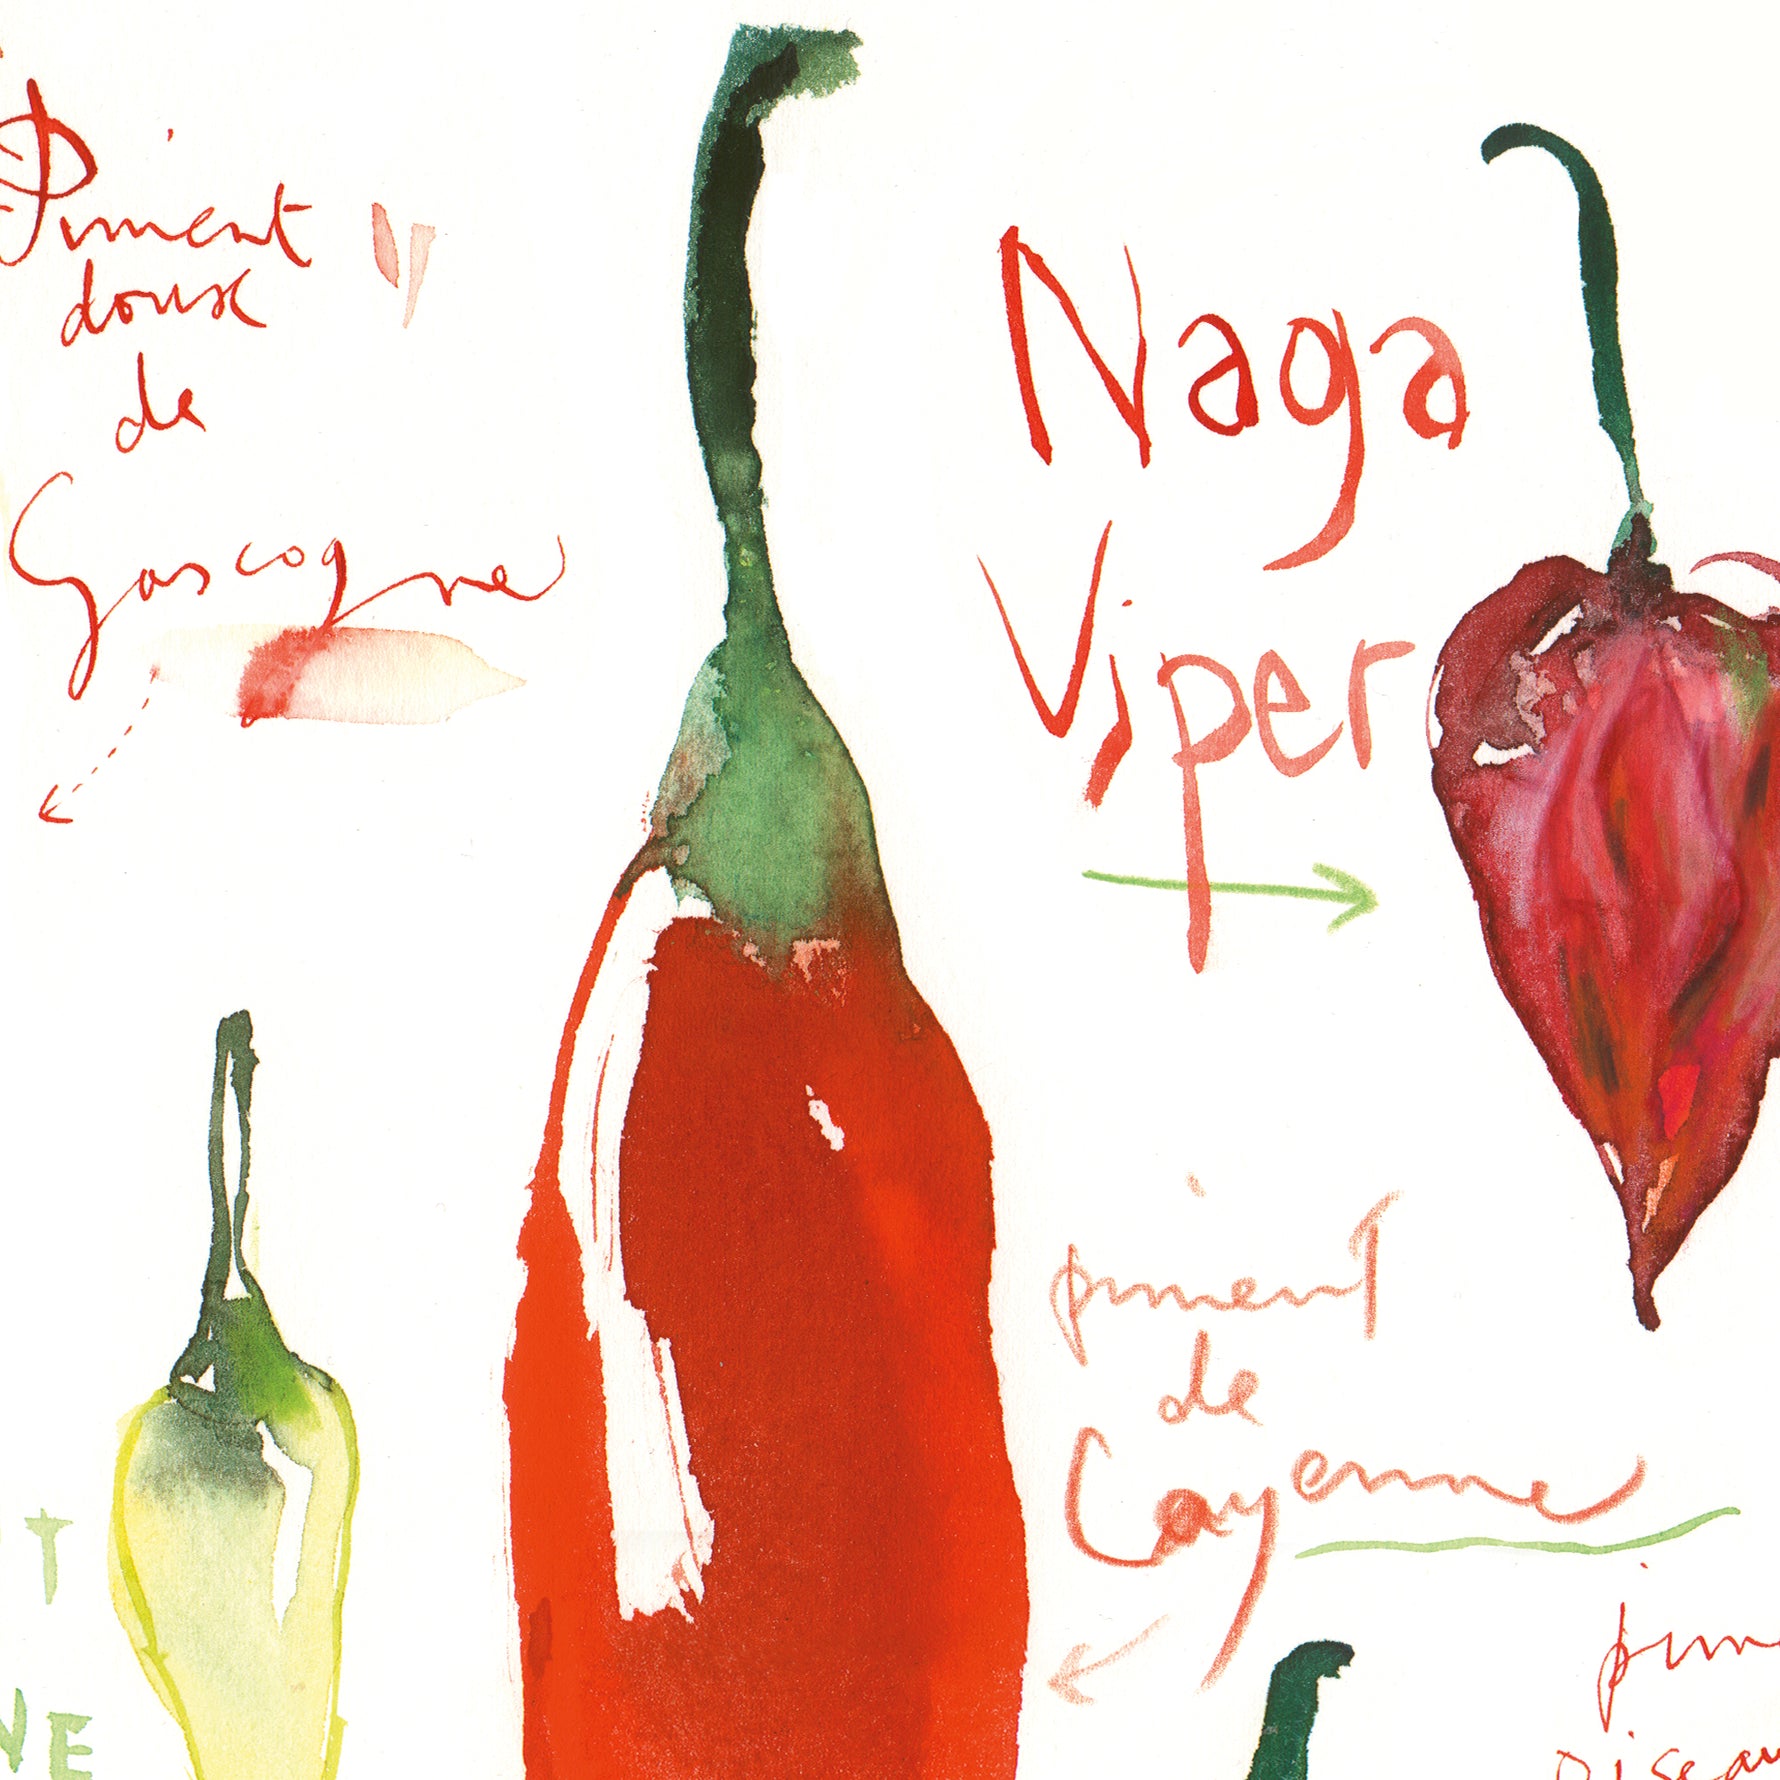 Piment
doux
de
Gascogne
Naga
Viper
piment
de
Cayenne
T
NE
pim
oiseau